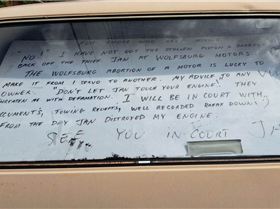 NO! I HAVE NOT GOT THE STOLEN
BACK OFF THE THIEF JAN AT WOLFSBURG MOTORS.
THE WOLFSBURG ABORTION OF A MOTOR IS LUCKY TO
MAKE IT FROM 1 SERVO TO ANOTHER. MY ADVICE TO ANY
OWNER. "DON'T LET JAN TOUCH YOUR ENGINE". THEY
THREATEN ME WITH DEFAMATION. I WILL BE IN COURT WITH
DOCUMENTS, TOWING RECEIPTS, WELL RECORDED BREAK DOWNS
FROM THE DAY JAN DISTROYED MY ENGINE.
SEE YOU IN COURT